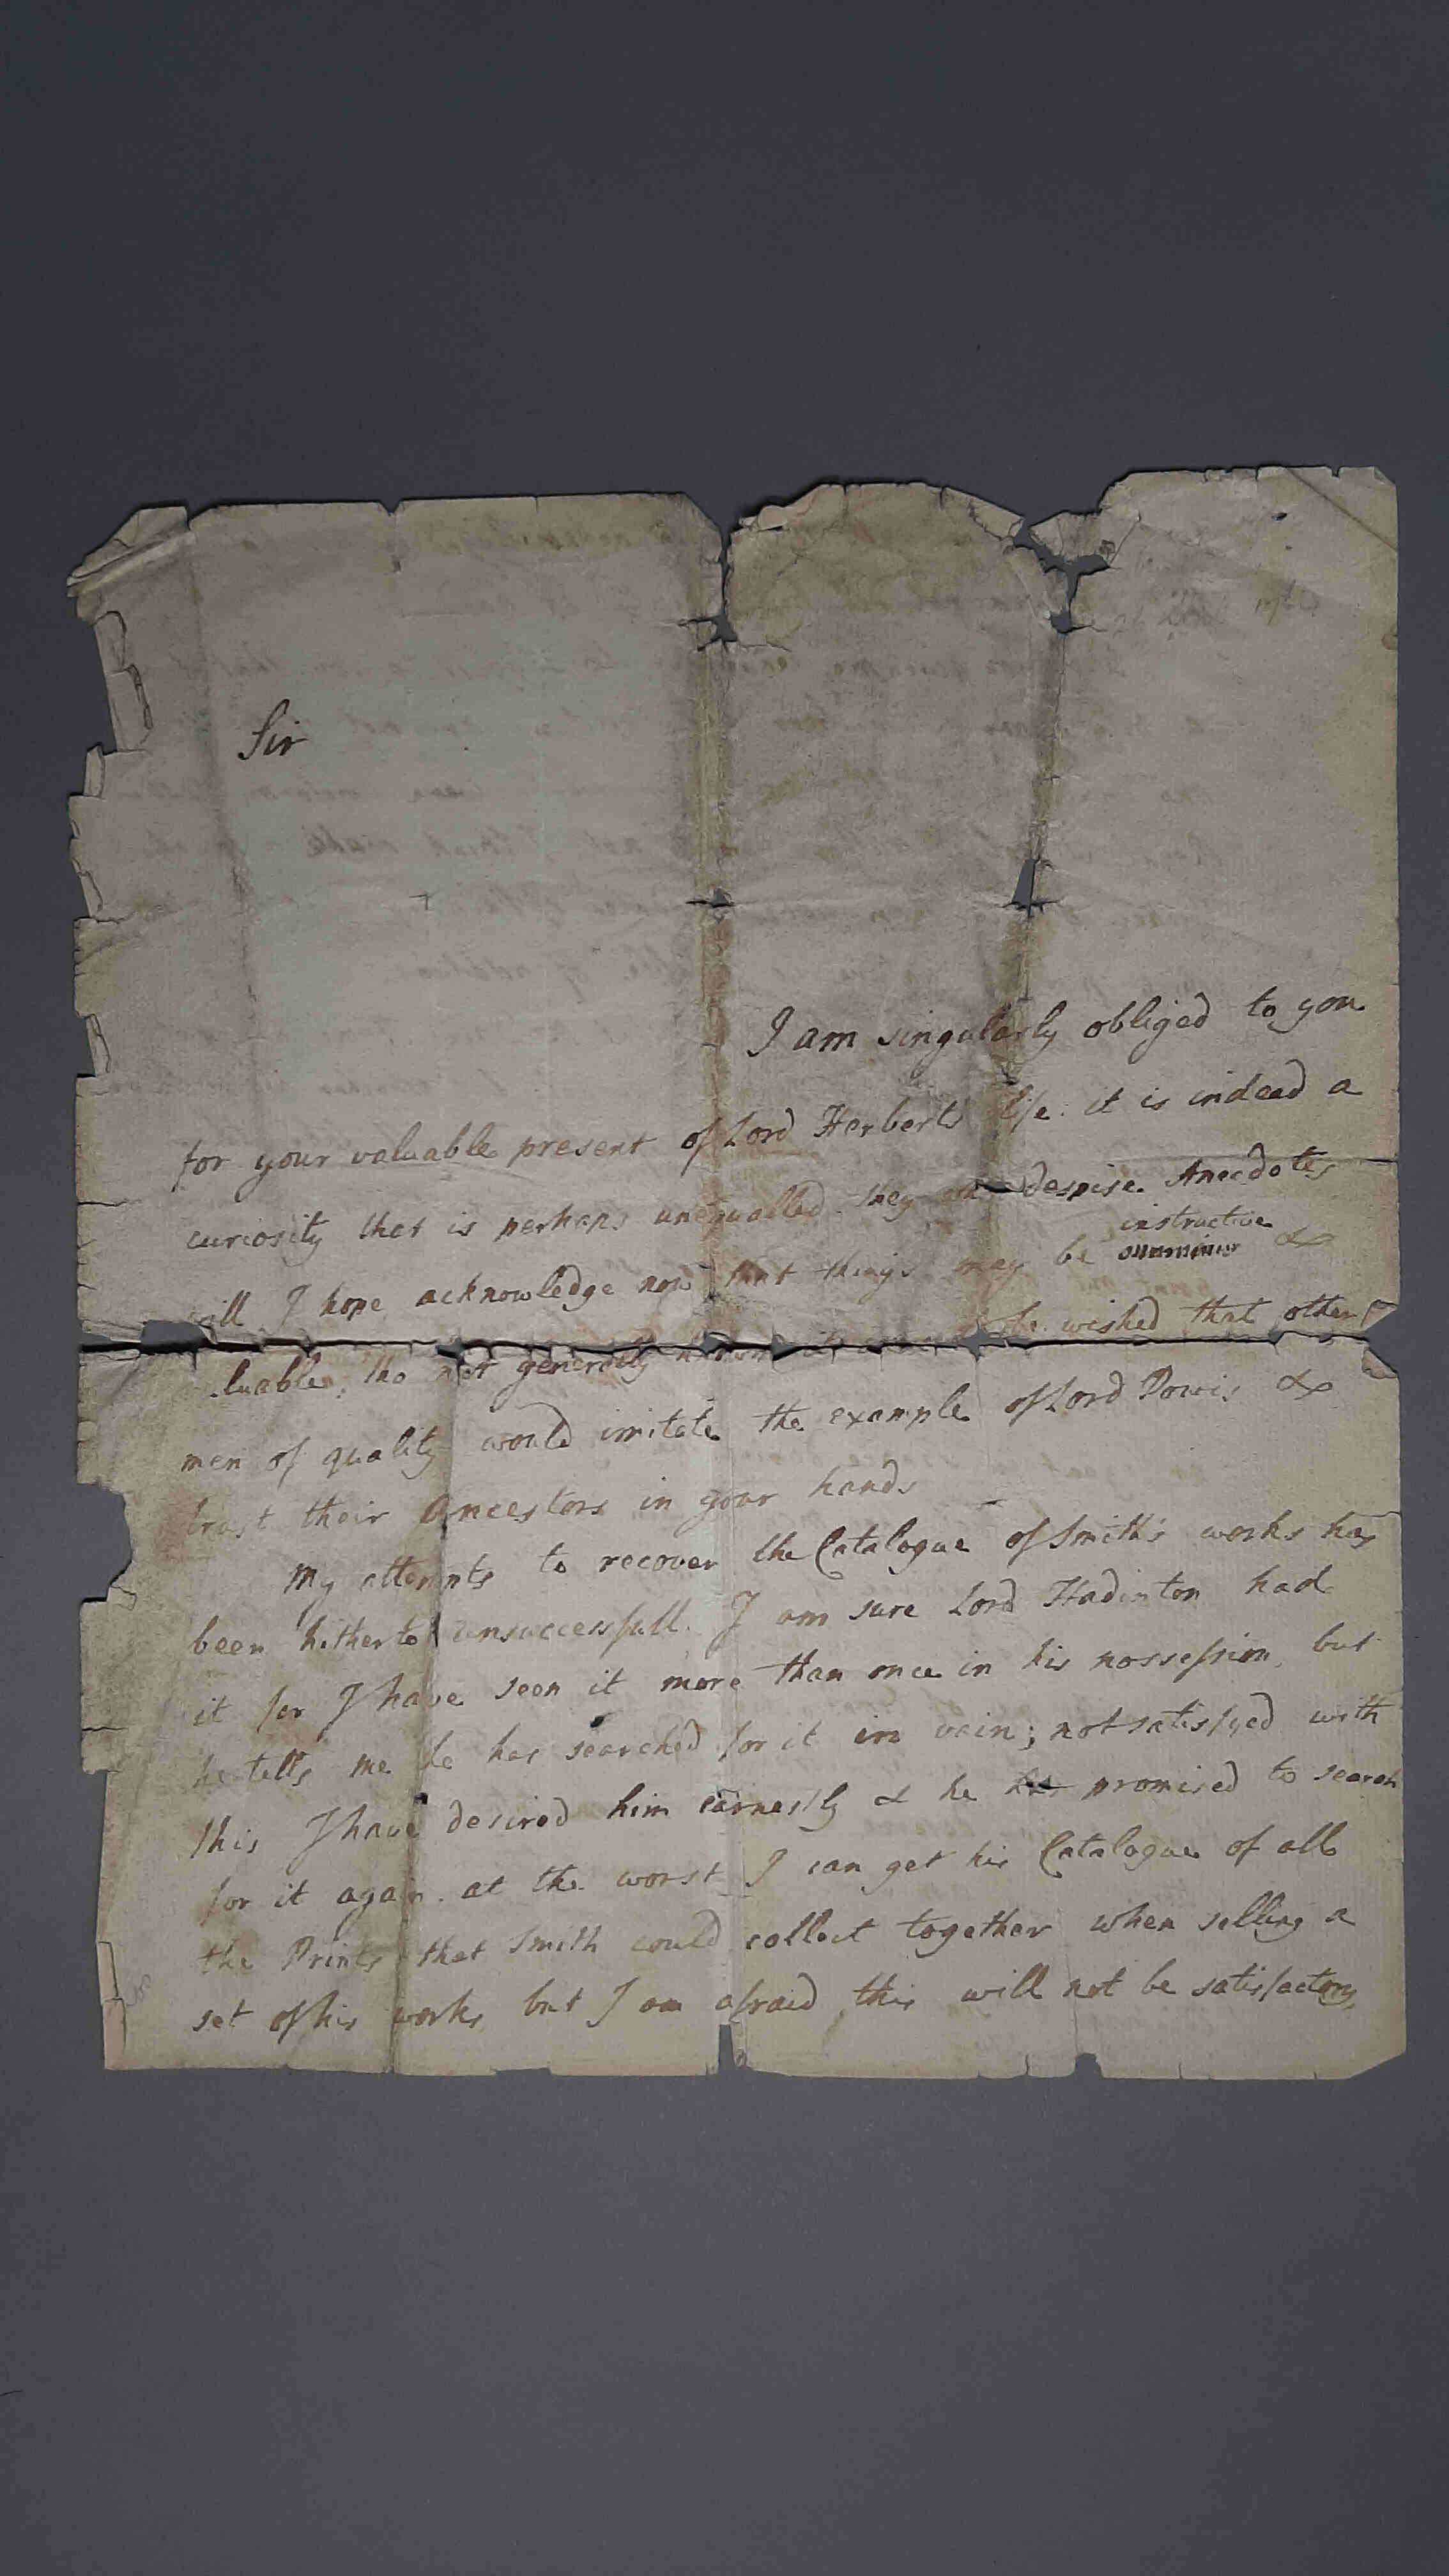 Sir
I am singularly obliged to you
for your valuable present of Lord Herberts life: it is indead a
curiosity that is perhaps unequalled. they despise Anecdotes
instructive
will I hope acknowledge now that things may be &
luable, tho not generally known it be wished that other
men of quality would imitate the example of Lord Powis &
trust their Ancestors in your hands
My attempts to recover the Catalogue of Smith's works has
been hitherto unsuccessfull. I am sure Lord Hadinton had
it for I have seen it more than once in his possession, but
he tells me he has searched for it in vain; not satisfyed with
this I have desired him earnestly & he has promised to search
for it again. at the worst I can get his Catalogue of all
the Prints that Smith could collect together when selling a
set of his works but I am afraid this will not be satisfactory